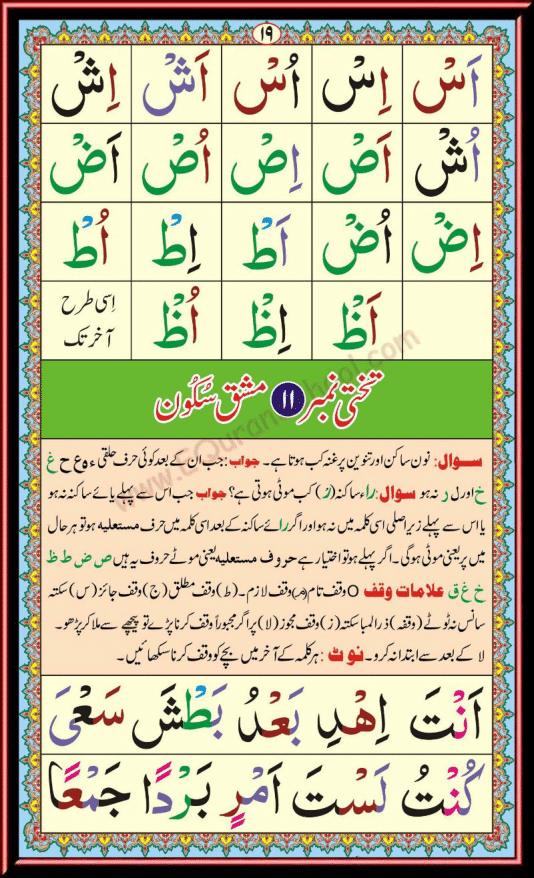 ١٩
اَسْ اِسْ اُسْ اَشْ اِشْ
اُشْ اَصْ اِصْ اُصْ اَضْ
اِضْ اُضْ اَطْ اِطْ اُطْ
اَظْ اِظْ اُظْ اِسی طرح آخر تک
تختی نمبر ١١ مشق سُکُون
سوال: نون ساکن اور تنوین پر غنہ کب ہوتا ہے۔ جواب: جب ان کے بعد کوئی حرف حلقی ء ہ ع ح غ
خ اور ل ر نہ ہو سوال: راء ساکنہ (رْ) کب موٹی ہوتی ہے؟ جواب جب اس سے پہلے یائے ساکنہ نہ ہو
یا اس سے پہلے زیر اصلی اسی کلمہ میں نہ ہو اور اگر رائے ساکنہ کے بعد اسی کلمہ میں حرف مستعلیہ ہو تو ہر حال
میں پر یعنی موٹی ہوگی۔ اگر پہلے ہو تو اختیار ہے حروف مستعلیہ یعنی موٹے حروف یہ ہیں ص ض ط ظ
خ غ ق علامات وقف O وقف تام (مـ) وقف لازم۔ (ط) وقف مطلق (ج) وقف جائز (س) سکتہ
سانس نہ ٹوٹے (وقفہ) ذرا لمبا سکتہ (ز) وقف مجوز (لا) پر اگر مجبوراً وقف کرنا پڑے تو پیچھے سے ملا کر پڑھو۔
لا کے بعد سے ابتدا نہ کرو۔ نوٹ: ہر کلمہ کے آخر میں بچے کو وقف کرنا سکھائیں۔
اَنْتَ اِهْدِ بَعْدُ بَطْشَ سَعْیَ
كُنْتُ لَسْتَ اَمْرٍ بَرْدًا جَمْعًا